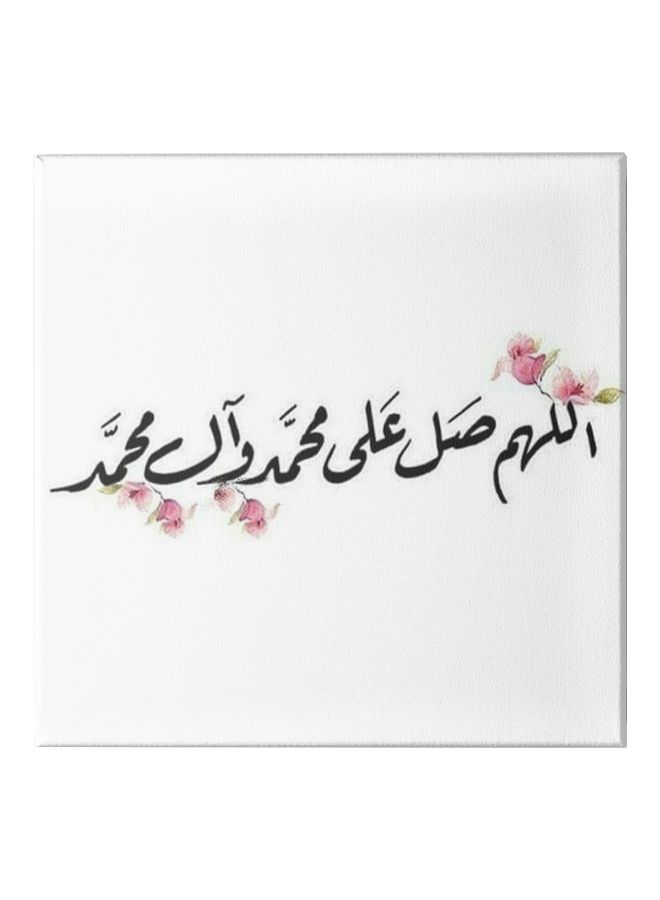 اللهم صَل عَلى محمَّد وآل محمَّد